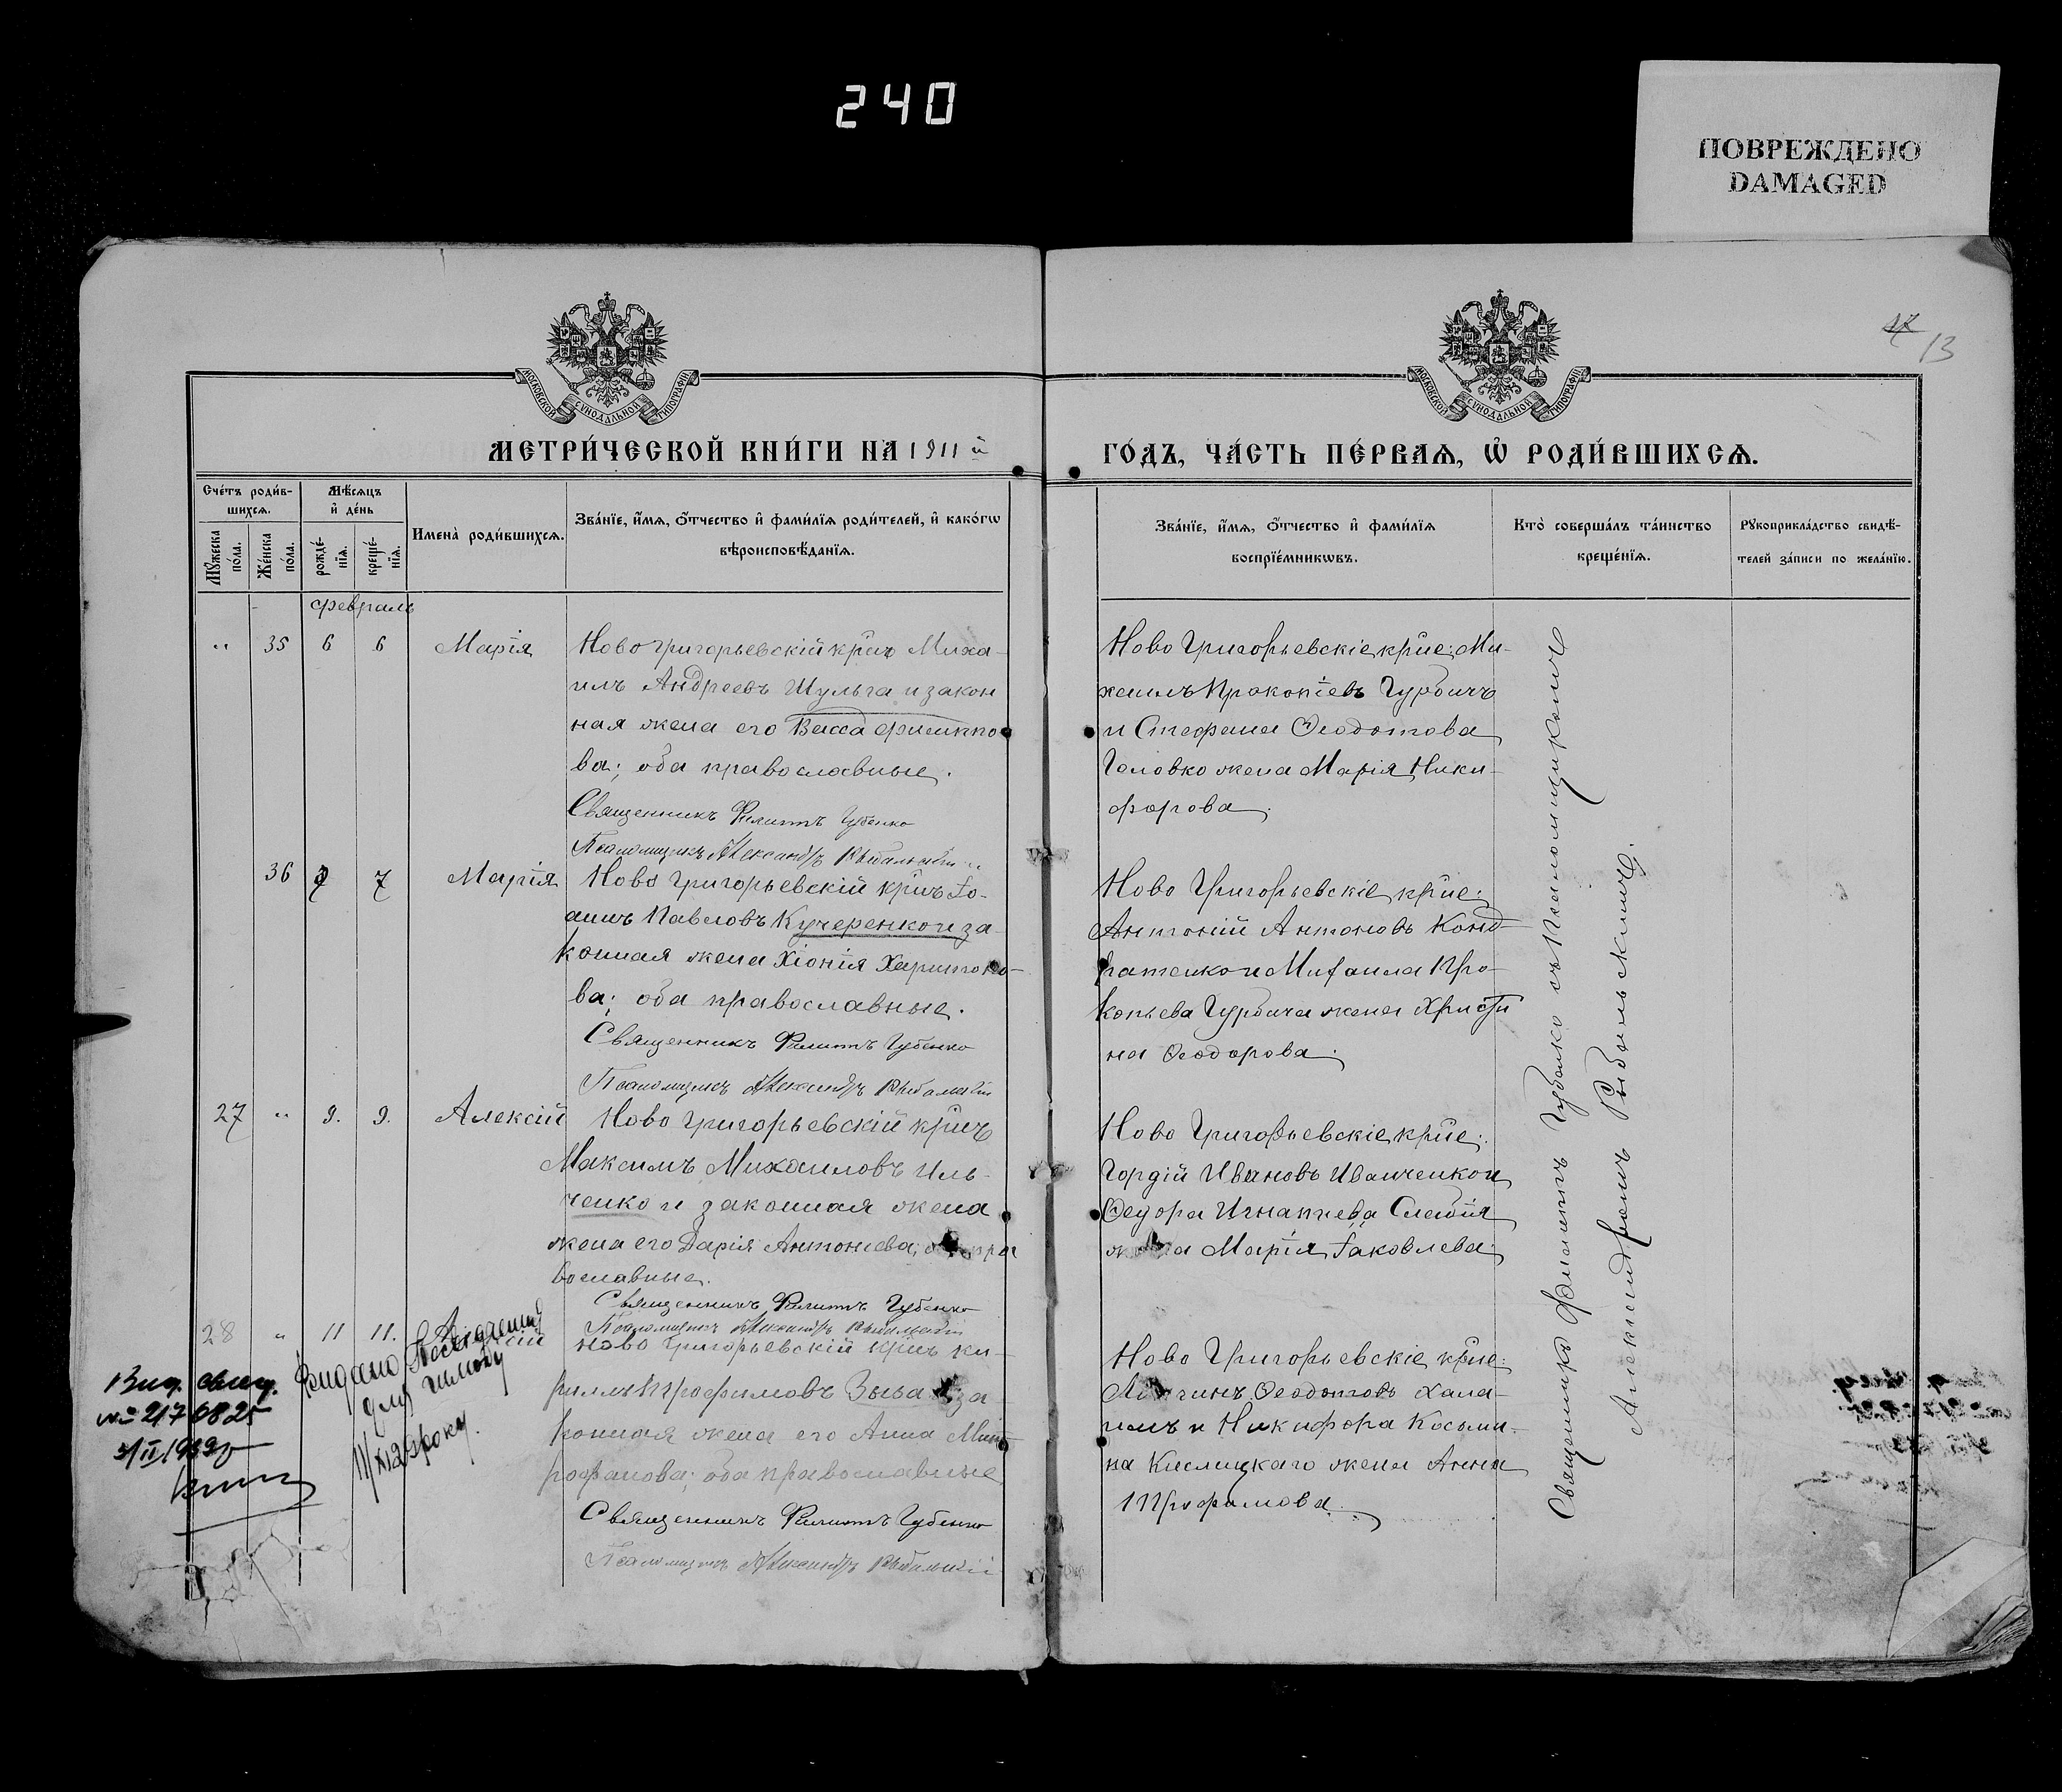 240
ПОВРЕЖДЕНО
DAMAGED
13
МОСКОВСКОЙ СѴНОДАЛЬНОЙ ТИПОГРАФІИ
МОСКОВСКОЙ СѴНОДАЛЬНОЙ ТИПОГРАФІИ
МЕТРИ́ЧЕСКОЙ КНИ́ГИ НА 1911 й
ГО́ДЪ, ЧА́СТЬ ПЕ́РВАѦ, Ѡ҆ РОДИ́ВШИХСѦ.
Сче́тъ роди́в-
шихсѧ.
Мꙋ́жеска по́ла.
Же́нска по́ла.
Мѣ́сѧцъ
и҆ де́нь
рожде́-
нїѧ.
креще́-
нїѧ.
Имена̀ роди́вшихсѧ.
Зва́нїе, и҆́мѧ, ѻ҆́тчество и҆ фами́лїѧ роди́телей, и҆ како́гѡ
вѣроисповѣ́данїѧ.
Зва́нїе, и҆́мѧ, ѻ҆́тчество и҆ фами́лїѧ
воспрїе́мникѡвъ.
Кто̀ соверша́лъ та́инство
креще́нїѧ.
Рꙋкоприкла́дство свидѣ́-
телей за́писи по жела́нїю.
февраль
" 35 6 6 Марія
Ново Григорьевскій кр͠нъ Миха-
илъ Андреевъ Шульга и закон
ная жена его Васса Филиппо
ва; оба православные.
Священникъ Филиппъ Губенко
Псаломщикъ Александръ Рыбальскій
Ново Григорьевскіе кр͠не: Ми-
хаилъ Прокопіевъ Гурбичъ
и Стефана Ѳеодотова
Головко жена Марія Ники-
форова.
36 7 7 Марія
Ново Григорьевскій кр͠нъ Іо-
аннъ Павловъ Кучеренко и за-
конная жена Хіонія Харитоно-
ва; оба православные.
Священникъ Филиппъ Губенко
Псаломщикъ Александръ Рыбальскій
Ново Григорьевскіе кр͠не:
Антоній Антоновъ Конд-
ратенко и Михаила Про-
копьева Гурбича жена Христи
на Ѳеодорова.
27 " 9. 9. Алексій
Ново Григорьевскій кр͠нъ
Максимъ Михаиловъ Иль-
ченко и законная жена
жена его Дарія Антоніева; пра
вославные.
Священникъ Филиппъ Губенко
Псаломщикъ Александръ Рыбальскій
Ново Григорьевскіе кр͠не:
Гордій Ивановъ Иванченко и
Ѳедора Игнатіева
жена Марія Іаковлева.
28 " 11 11.
Ново Григорьевскій кр͠нъ Ки-
риллъ Трофимовъ за
конная жена его Анна Мит
рофанова; оба православные
Священникъ Филиппъ Губенко
Псаломщикъ Александръ Рыбальскій
Ново Григорьевскіе кр͠не:
Ѳеодотовъ
и Никифора Косьми-
на Кислицкаго жена Анна
Трофимова.
Священникъ Филиппъ Губенко съ Псаломщикомъ
Александромъ Рыбальскимъ.
Выд. свид.